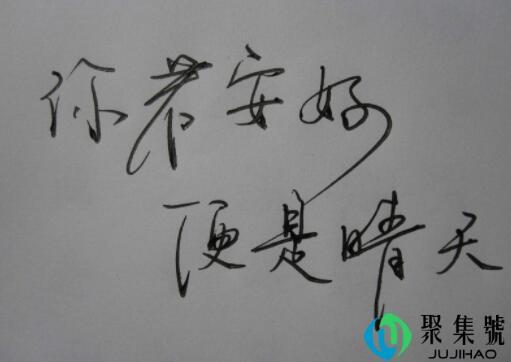 你若安好
便是晴天
聚集號
JUJIHAO